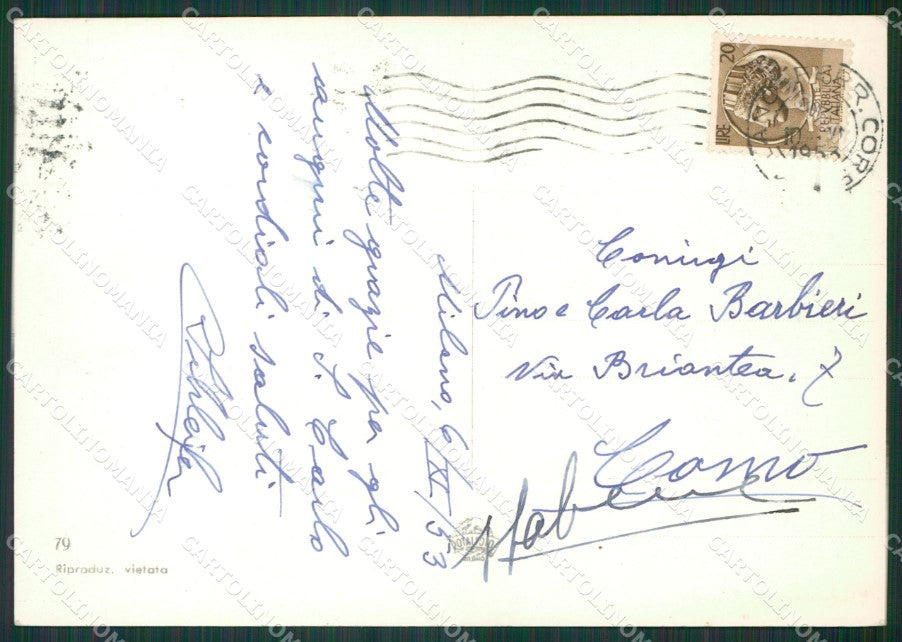 Milano, 6/XI/53
Molte grazie per gli
auguri di S. Carlo
e cordiali saluti
Coniugi
Pino e Carla Barbieri
Via Briantea, 7
Como
LIRE 20
REPUBBLICA
ITALIANA
R. CORR
1953
79
Riproduz. vietata
CARTOLINOMANIA